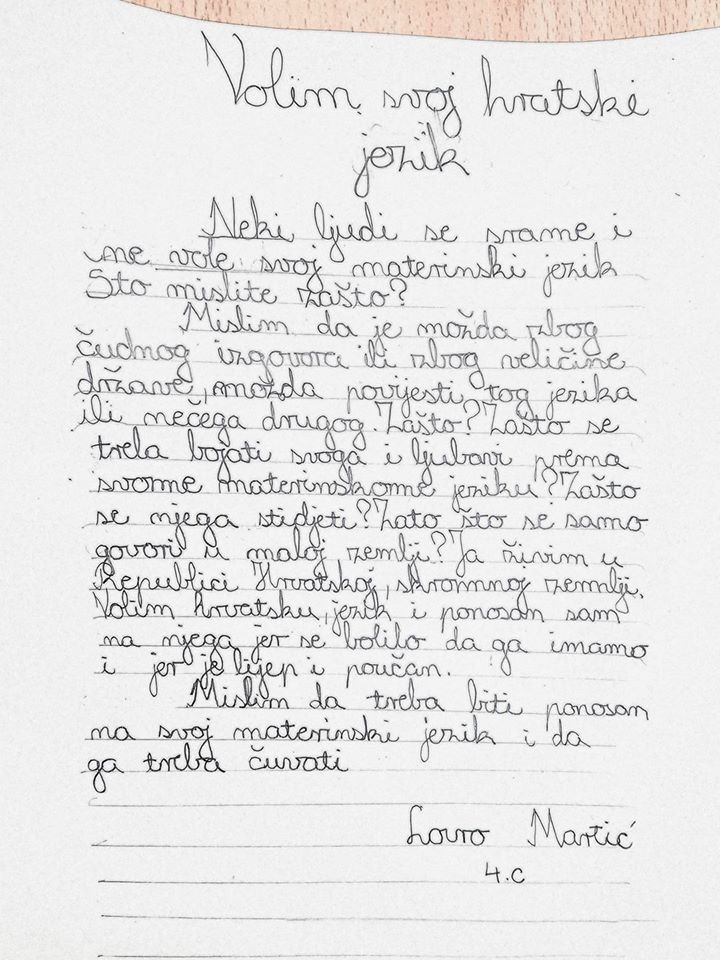 Volim svoj hrvatski
jezik
Neki ljudi se srame i
ne vole svoj materinski jezik
Što mislite zašto?
Mislim da je možda zbog
čudnog izgovora ili zbog veličine
države, možda povijesti tog jezika
ili nečega drugog. Zašto? Zašto se
treba bojati svoga i ljubavi prema
svome materinskome jeziku? Zašto
se njega stidjeti? Zato što se samo
govori u maloj zemlji? Ja živim u
Republici Hrvatskoj, skromnoj zemlji.
Volim hrvatsku, jezik i ponosan sam
na njega jer se bolilo da ga imamo
i jer je lijep i poučan.
Mislim da treba biti ponosan
na svoj materinski jezik i da
ga treba čuvati
Lovro Martić
4.c